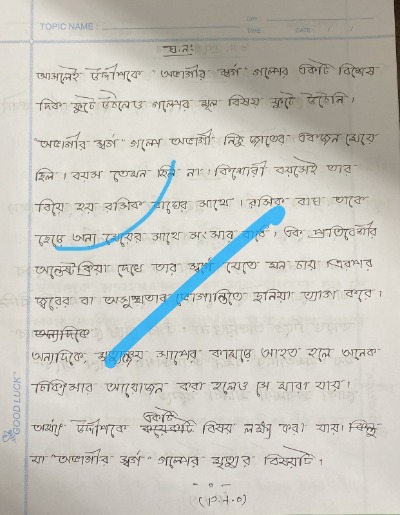 TOPIC NAME :
DAY :
TIME : DATE : / /
ঘ.নং
আসলেই উদ্দীপকে "অভাগীর স্বর্গ" গল্পের একটি বিশেষ
দিক ফুটে উঠলেও গল্পের মূল বিষয় ফুটে উঠেনি।
"অভাগীর স্বর্গ" গল্পে অভাগী নিচু জাতের একজন মেয়ে
ছিল। বয়স তেমন ছিল না। কিশোরী বয়সেই তার
বিয়ে হয় রসিক বাঘের সাথে। রসিক বাঘ তাকে
ছেড়ে অন্য মেয়ের সাথে সংসার করে। এক প্রতিবেশীর
অন্তেষ্টিক্রিয়া দেখে তার স্বর্গে যেতে মন চায় এরপর
জ্বরের বা অসুস্থতার ভোগান্তিতে দুনিয়া ত্যাগ করে।
অন্যদিকে
অন্যদিকে, সাপের কামড়ে আহত হলে অনেক
চিকিৎসার আয়োজন করা হলেও সে মারা যায়।
অর্থাৎ উদ্দীপকে একটি বিষয় লক্ষ্য করা যায়। কিন্তু
যা "অভাগীর স্বর্গ" গল্পের মৃত্যুর বিষয়টি।
GOOD LUCK